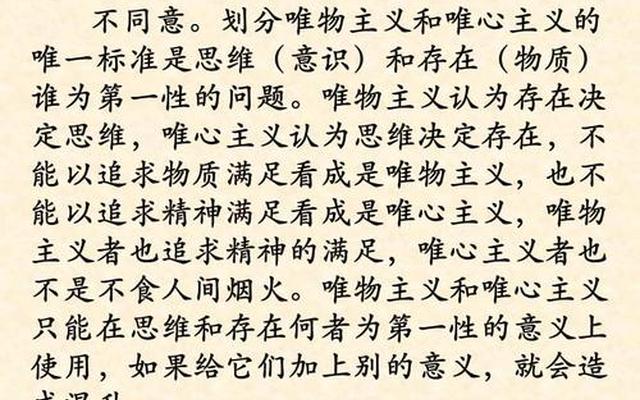 不同意。划分唯物主义和唯心主义的
唯一标准是思维（意识）和存在（物质）
谁为第一性的问题。唯物主义认为存在决
定思维，唯心主义认为思维决定存在，不
能以追求物质满足看成是唯物主义，也不
能以追求精神满足看成是唯心主义，唯物
主义者也追求精神的满足，唯心主义者也
不是不食人间烟火。唯物主义和唯心主义
只能在思维和存在何者为第一性的意义上
使用，如果给它们加上别的意义，就会造